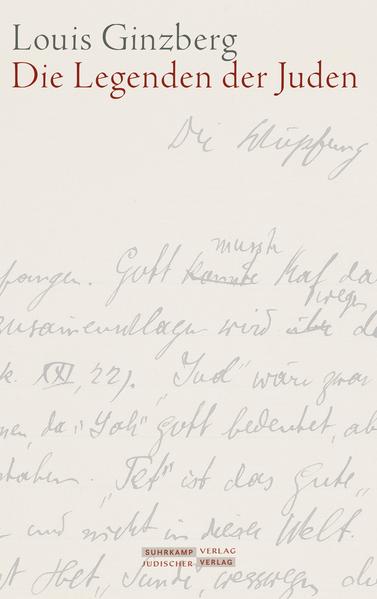 Louis Ginzberg
Die Legenden der Juden
Die Schöpfung
musste
fangen. Gott konnte Kaf da
wegen
wird über
k. XXI, 22). „Jud" wäre zwar
men, da „Jah" Gott bedeutet, ab
staben. „Tet" ist das Gute „
und nicht in dieser Welt.
SUHRKAMP VERLAG
JÜDISCHER VERLAG
st Het, „Sünde, weswegen d